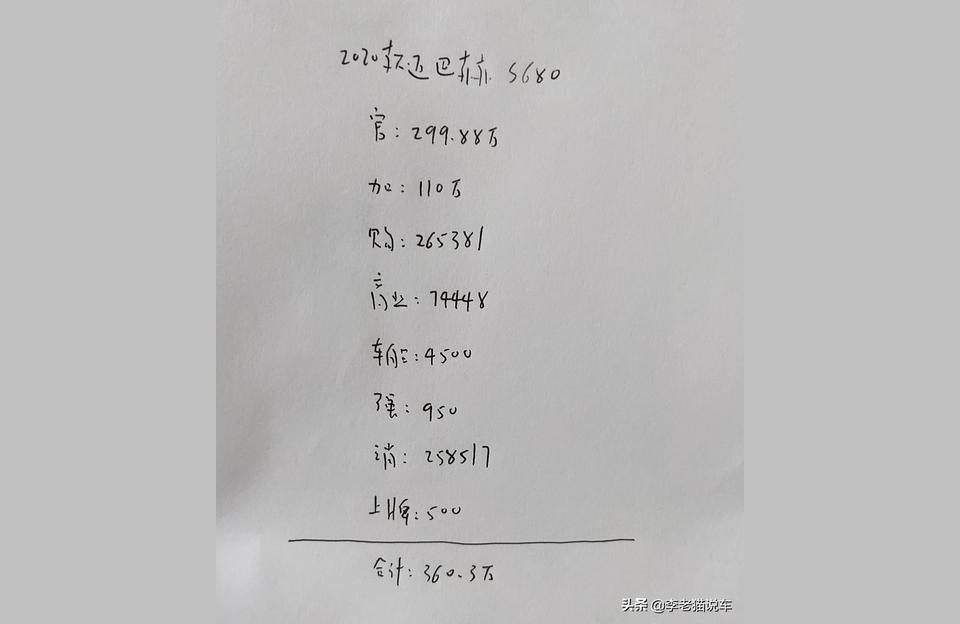 2020款迈巴赫 S680
官：299.88万
加：110万
购：265381
商业：74448
车船：4500
强：950
消：258517
上牌：500
合计：360.3万
头条 @李老猫说车